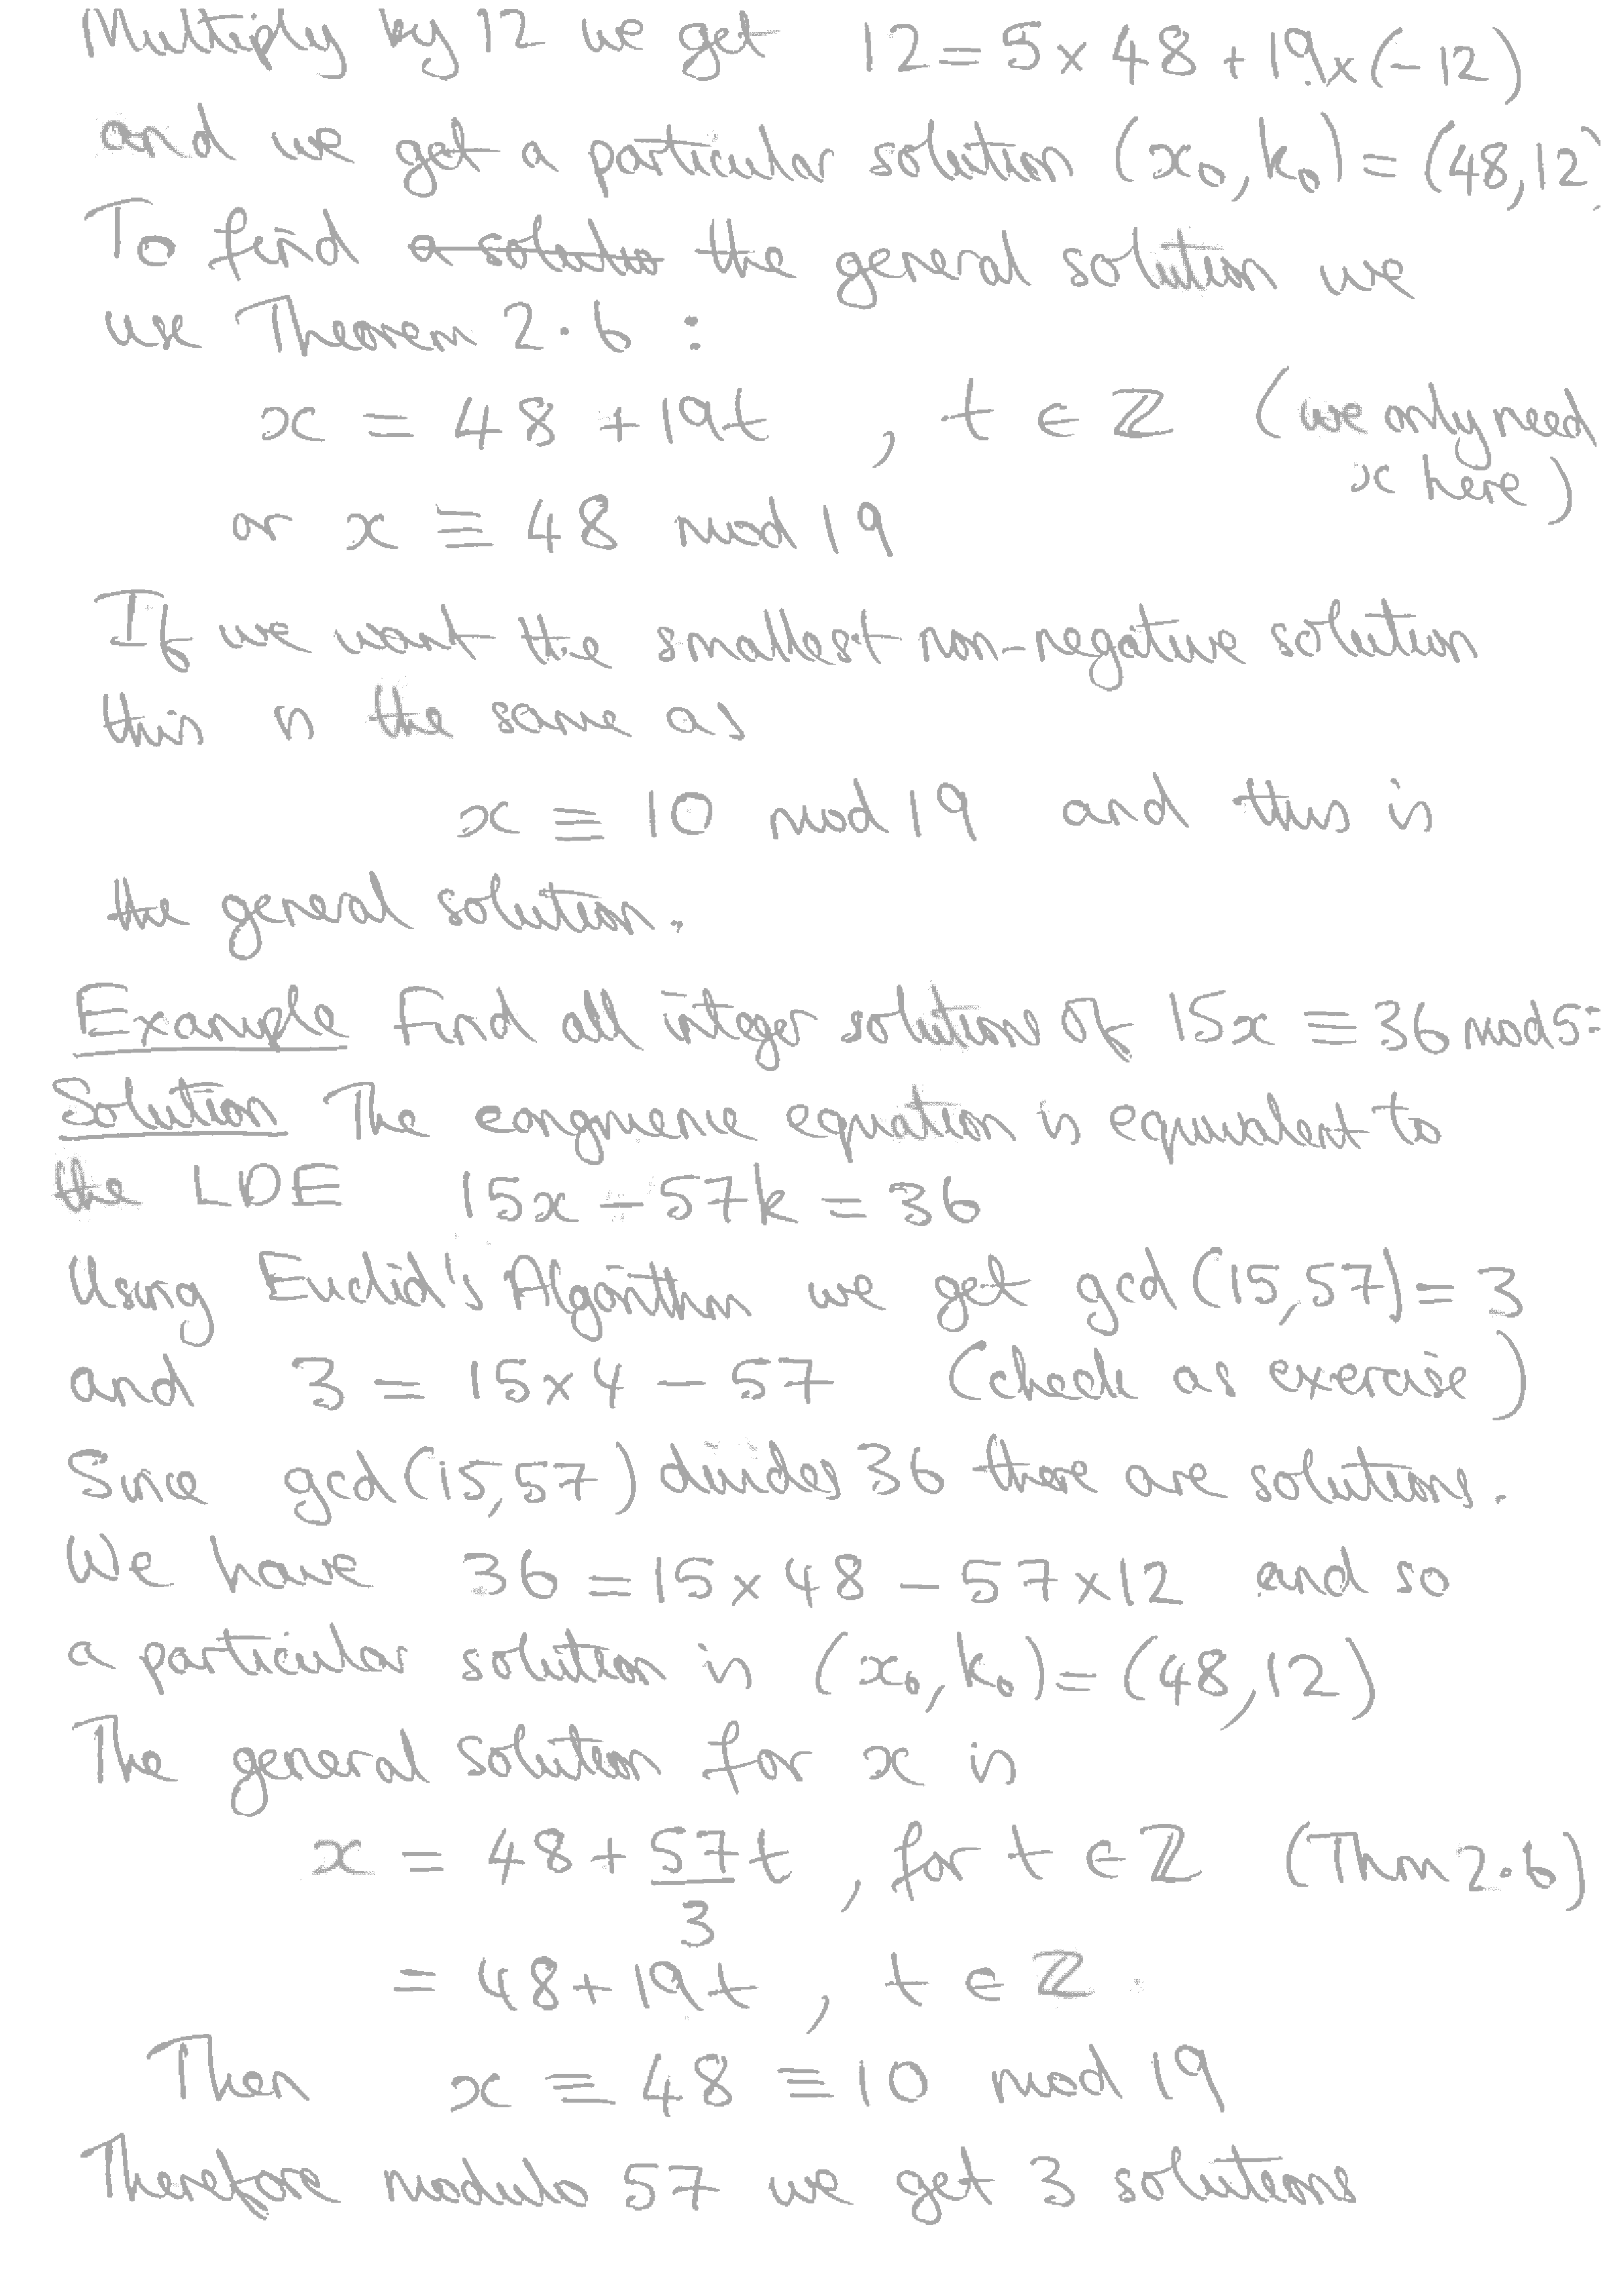 Multiply by 12 we get 12 = 5 × 48 + 19 × (-12)
and we get a particular solution (x₀, k₀) = (48, 12)
To find a solutio the general solution we
use Theorem 2.6 :
x = 48 + 19t , t ∈ ℤ (we only need
x here)
or x ≡ 48 mod 19
If we want the smallest non-negative solution
this is the same as
x ≡ 10 mod 19 and this is
the general solution.
Example Find all integer solutions of 15x ≡ 36 mod 5
Solution The congruence equation is equivalent to
the LDE 15x - 57k = 36
Using Euclid's Algorithm we get gcd(15,57) = 3
and 3 = 15×4 - 57 (check as exercise)
Since gcd(15,57) divides 36 there are solutions.
We have 36 = 15 × 48 - 57 × 12 and so
a particular solution is (x₀, k₀) = (48, 12)
The general solution for x is
x = 48 + 57/3 t , for t ∈ ℤ (Thm 2.6)
= 48 + 19t , t ∈ ℤ.
Then x ≡ 48 ≡ 10 mod 19
Therefore modulo 57 we get 3 solutions